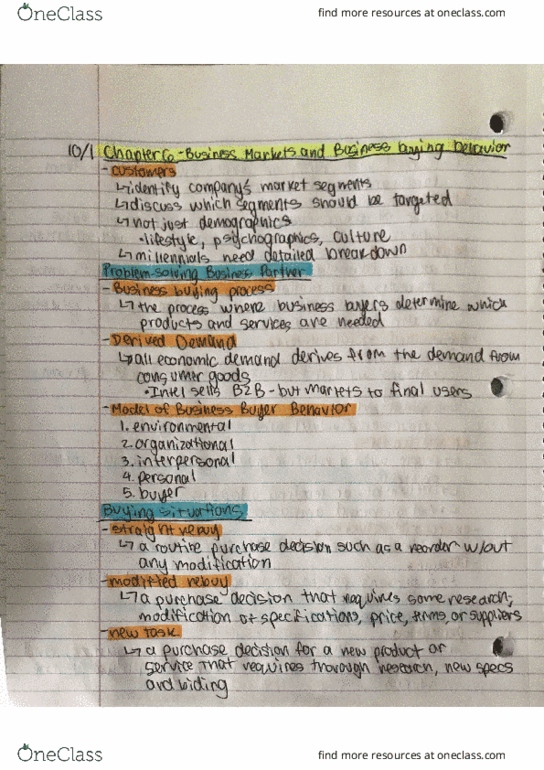 OneClass
find more resources at oneclass.com
10/1 Chapter 6 - Business Markets and Business buying behavior
- customers
↳ identify company's market segments
↳ discuss which segments should be targeted
↳ not just demographics
• lifestyle, psychographics, culture
↳ millennials need detailed breakdown
Problem-solving Business Partner
- Business buying process
↳ the process where business buyers determine which
products and services are needed
- Derived Demand
↳ all economic demand derives from the demand from
consumer goods
• Intel sells B2B - but markets to final users
- Model of Business Buyer Behavior
1. environmental
2. organizational
3. interpersonal
4. personal
5. buyer
Buying situations
- straight rebuy
↳ a routine purchase decision such as a reorder w/out
any modification
- modified rebuy
↳ a purchase decision that requires some research;
modification of specifications, price, terms, or suppliers
- new task
↳ a purchase decision for a new product or
service that requires thorough research, new specs
and biding
OneClass
find more resources at oneclass.com